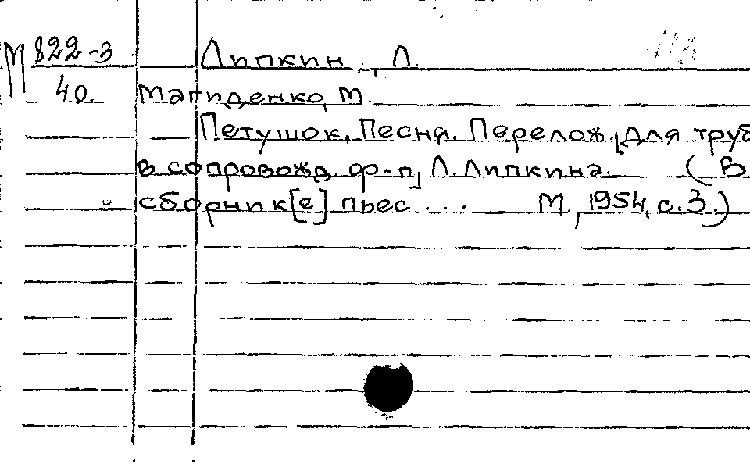 М 822-3 Липкин, Л.
40. Магиденко, М
Петушок. Песня. Перелож. для труб
в сопровожд. ф-п] Л. Липкина. (В
сборник[е] пьес ... М, 1954, с.3.)